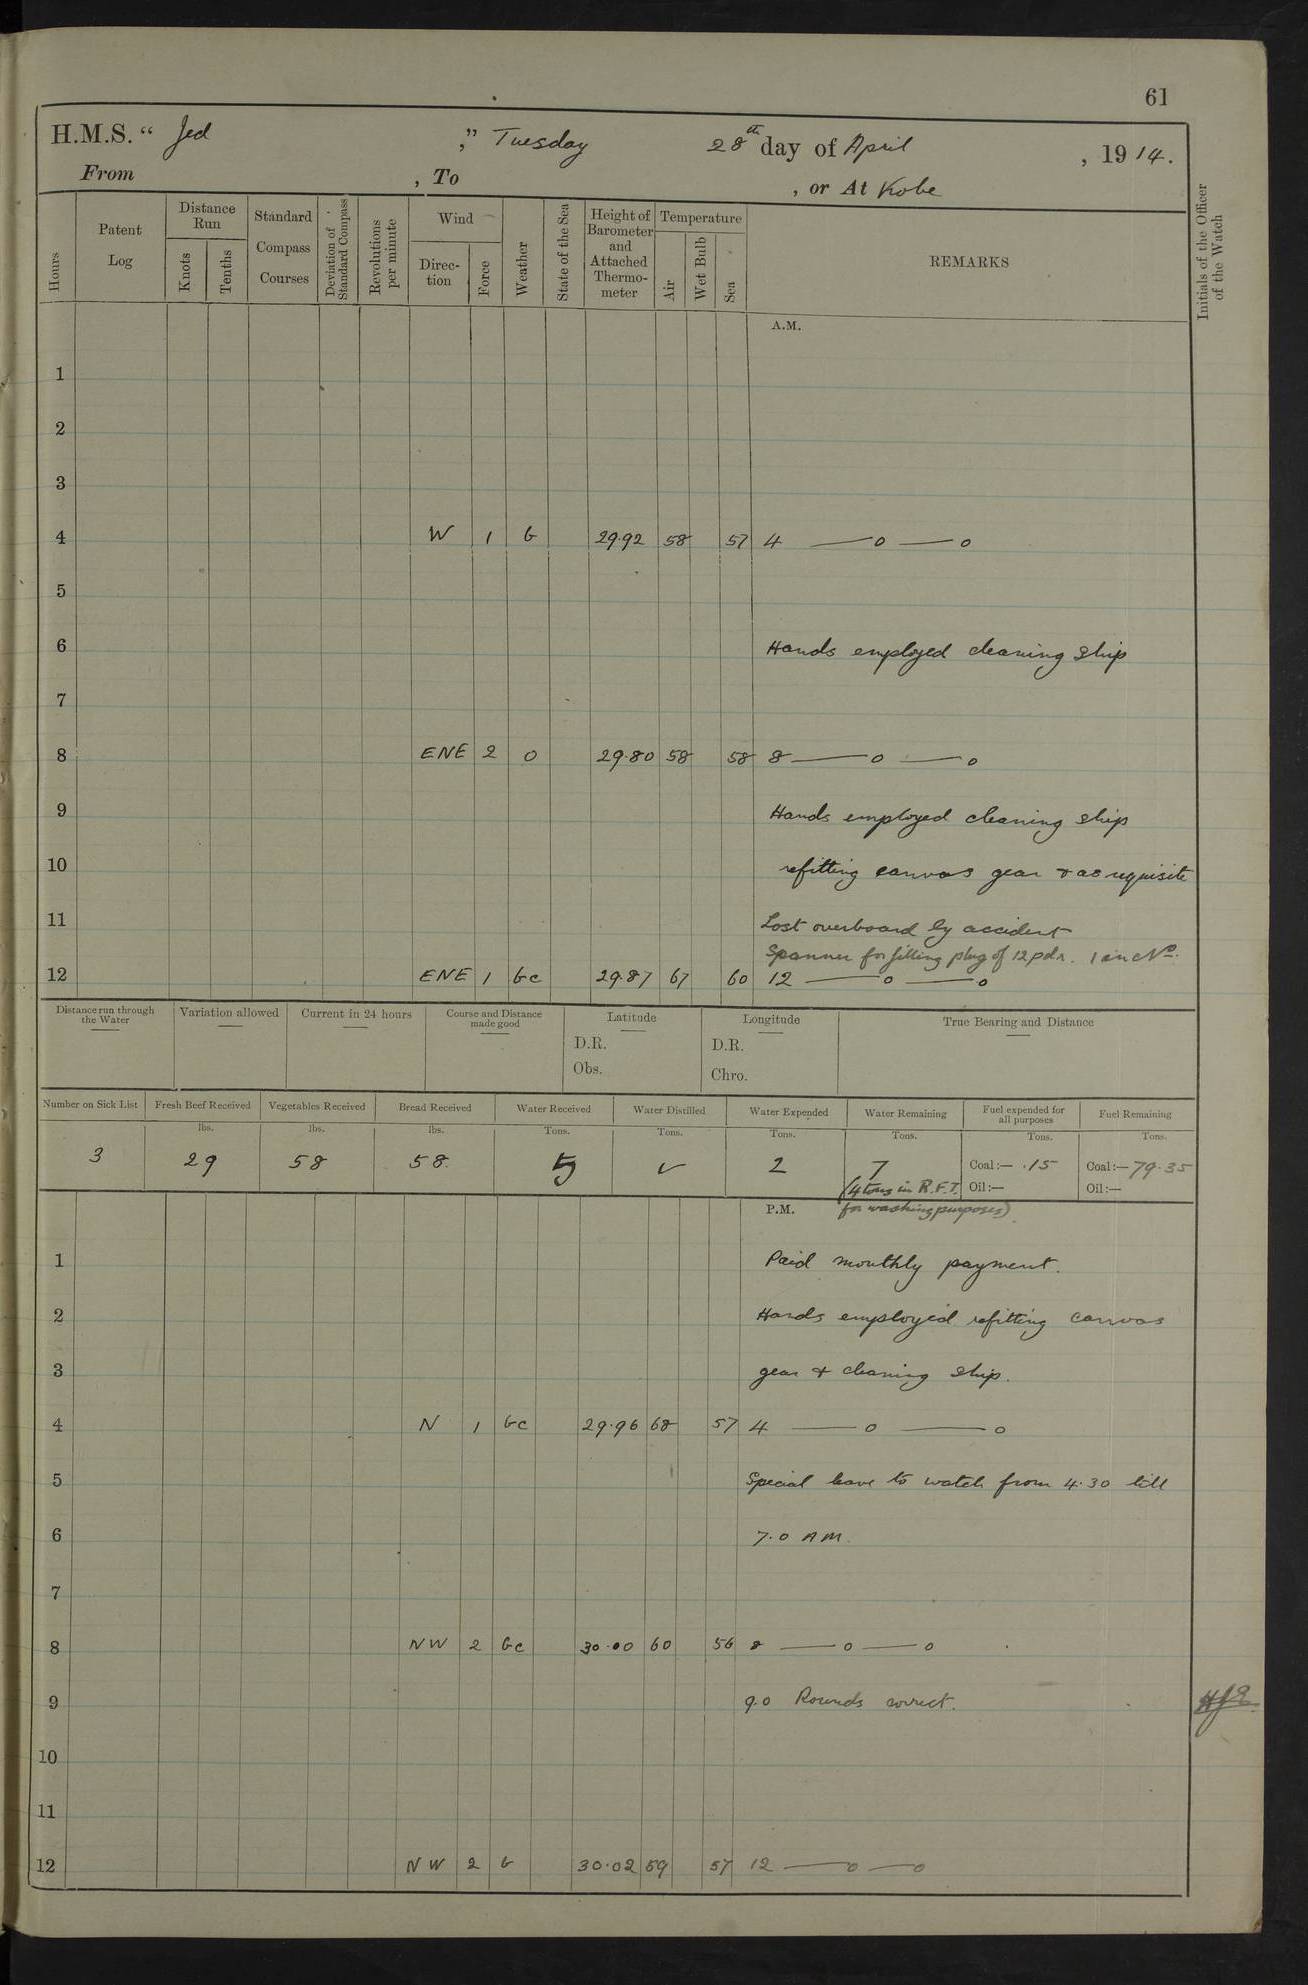 61
H.M.S. “ Jed ,” Tuesday 28th day of April , 1914.
From , To , or At Kobe
Hours
Patent Log
Distance Run
Knots
Tenths
Standard Compass Courses
Deviation of Standard Compass
Revolutions per minute
Wind
Direc-tion
Force
Weather
State of the Sea
Height of Barometer and Attached Thermo-meter
Temperature
Air
Wet Bulb
Sea
REMARKS
Initials of the Officer of the Watch
A.M.
1
2
3
4 W 1 b 29.92 58 57 4 —o —o
5
6 Hands employed cleaning ship
7
8 ENE 2 o 29.80 58 58 8 —o —o
9 Hands employed cleaning ship
10 refitting canvas gear & as requisite
11 Lost overboard by accident
Spanner for fitting plug of 12 pdr. 1 in No.
12 ENE 1 bc 29.87 67 60 12 —o —o
Distance run through the Water
Variation allowed
Current in 24 hours
Course and Distance made good
Latitude
D.R.
Obs.
Longitude
D.R.
Chro.
True Bearing and Distance
Number on Sick List
Fresh Beef Received
Vegetables Received
Bread Received
Water Received
Water Distilled
Water Expended
Water Remaining
Fuel expended for all purposes
Fuel Remaining
lbs. lbs. lbs. Tons. Tons. Tons. Tons. Tons. Tons.
3 29 58 58 5 ✓ 2 7 Coal:— .15 Coal:— 79.35
(4 tons in R.F.T. Oil:— Oil:—
P.M. for washing purposes)
1 Paid monthly payment.
2 Hands employed refitting canvas
3 gear & cleaning ship.
4 N 1 bc 29.96 68 57 4 —o —o
5 Special leave to watch from 4.30 till
6 7.0 AM.
7
8 NW 2 bc 30.00 60 56 8 —o —o
9 9.0 Rounds correct.
10
11
12 NW 2 b 30.02 59 57 12 —o —o